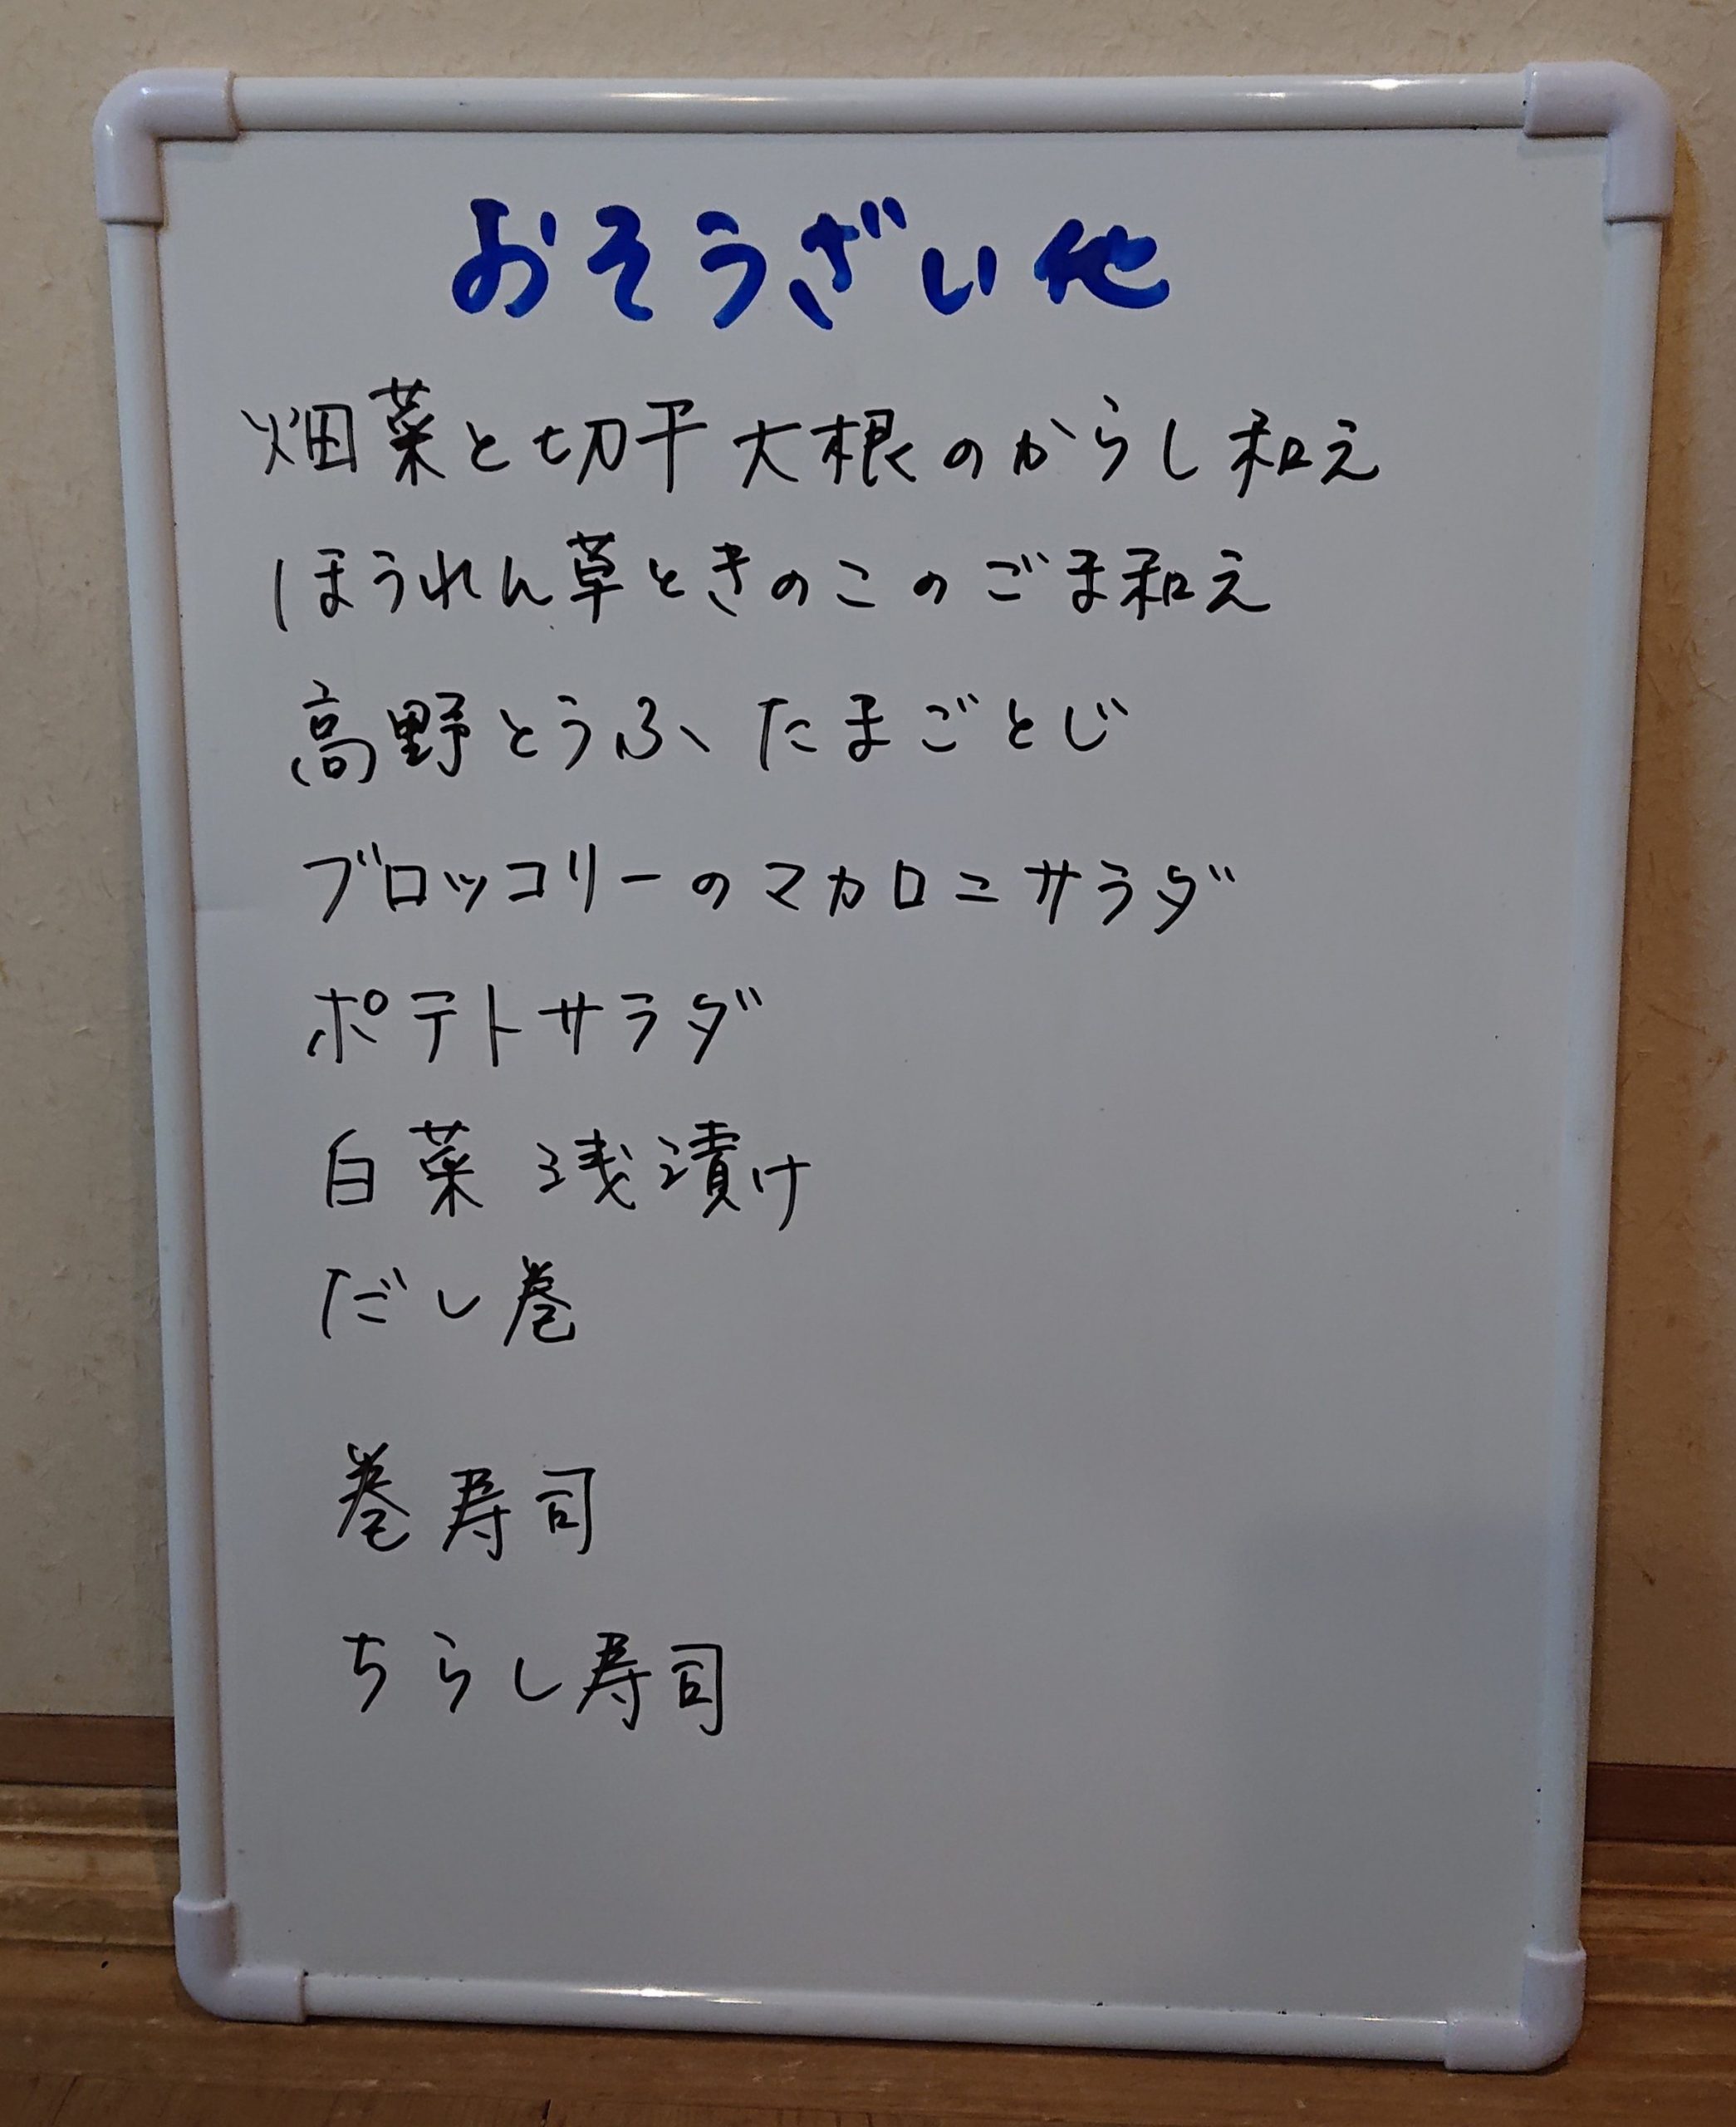 おそうざい他
畑菜と切干大根のからし和え
ほうれん草ときのこのごま和え
高野とうふ たまごとじ
ブロッコリーのマカロニサラダ
ポテトサラダ
白菜 浅漬け
だし巻
巻寿司
ちらし寿司